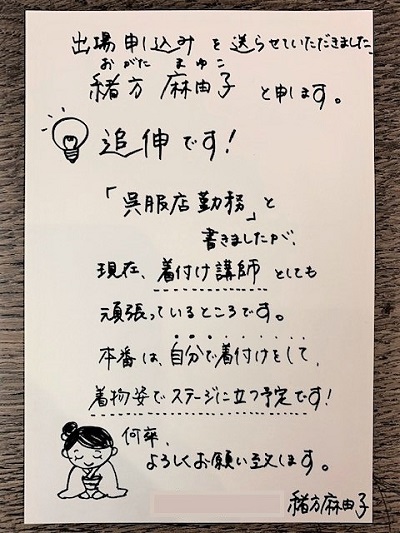 出場申し込みを送らせていただきました、
おがた まゆこ
緒方 麻由子 と申します。
追伸です！
「呉服店勤務」と
書きましたが、
現在、着付け講師としても
頑張っているところです。
本番は、自分で着付けをして、
着物姿でステージに立つ予定です！
何卒、
よろしくお願い致します。
緒方麻由子